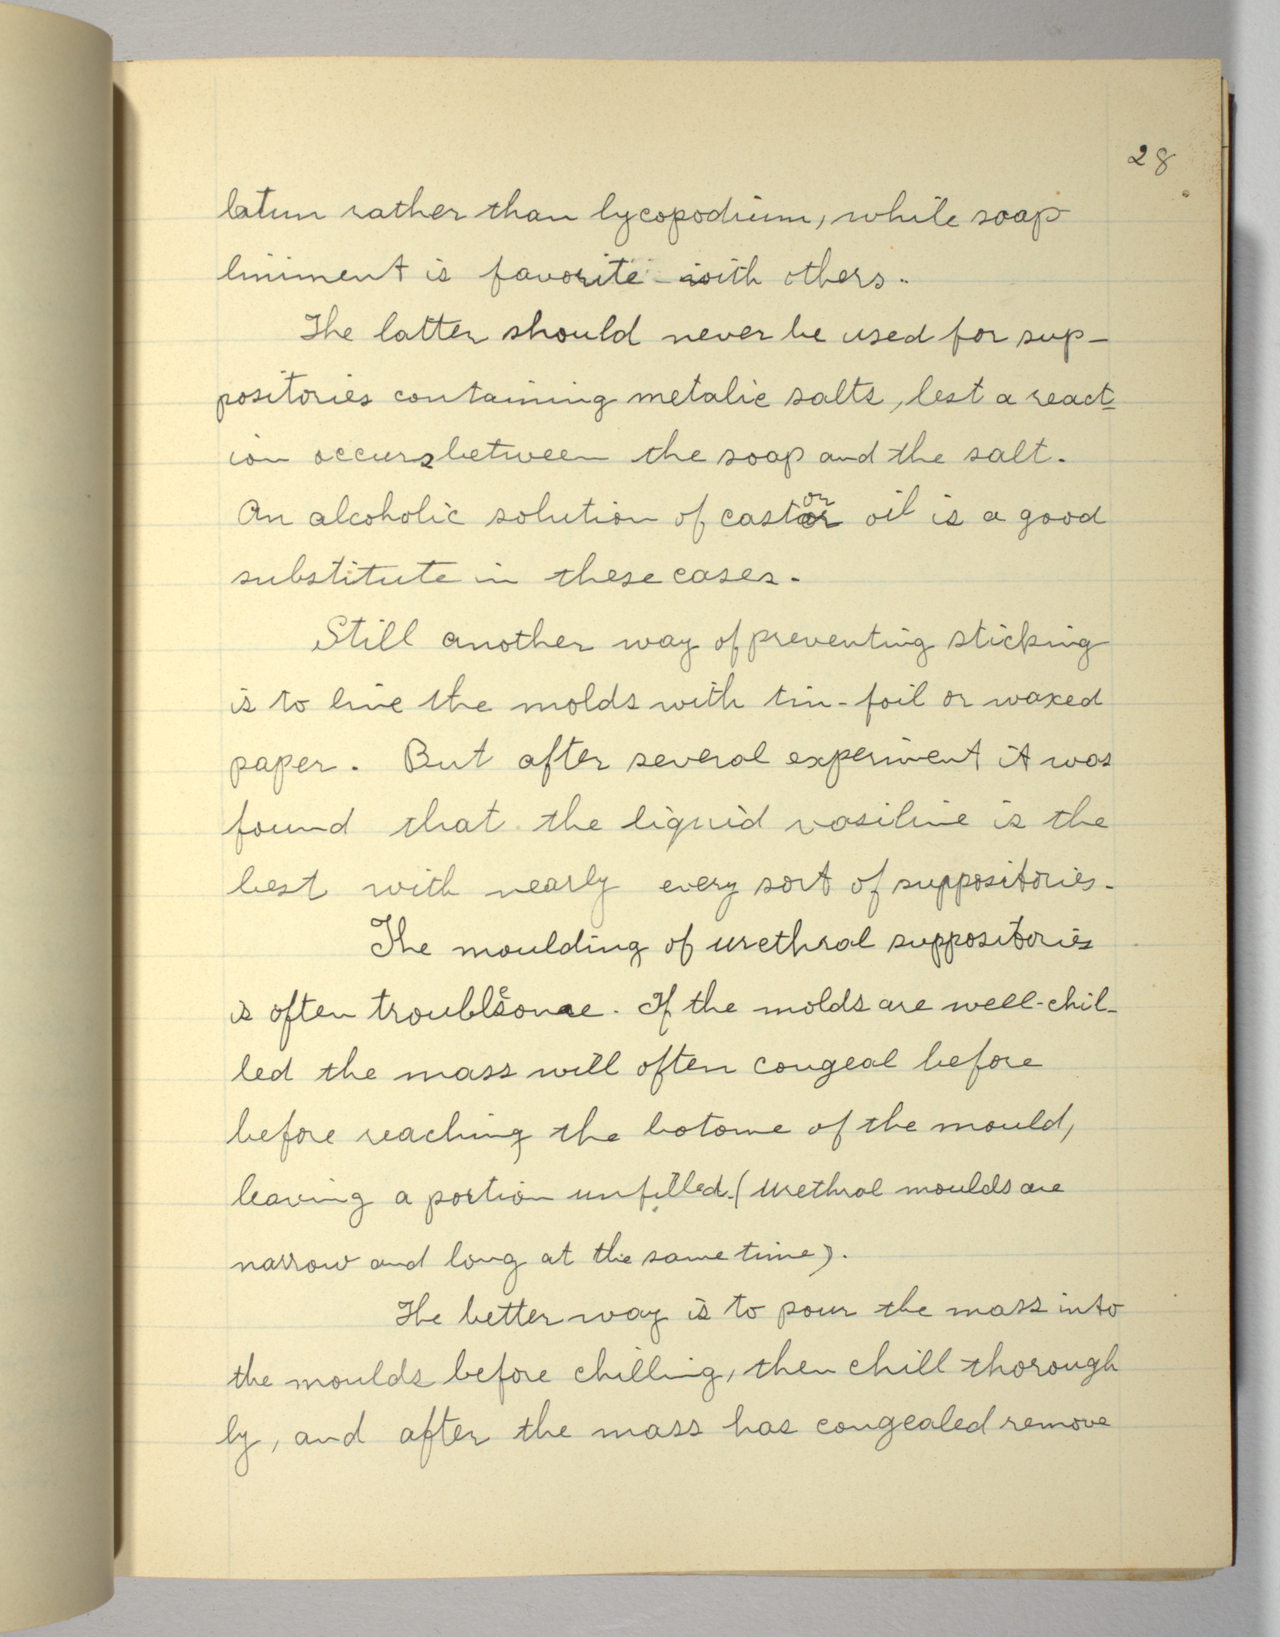 28
latum rather than lycopodium, while soap
liniment is favorite with others.
The latter should never be used for sup-
positories containing metalic salts, lest a react-
ion occurs between the soap and the salt.
An alcoholic solution of castor oil is a good
substitute in these cases.
Still another way of preventing sticking
is to line the molds with tin-foil or waxed
paper. But after several experiment it was
found that the liquid vasiline is the
best with nearly every sort of suppositories.
The moulding of urethral suppositories
is often troublesome. If the molds are well-chil-
led the mass will often congeal before
before reaching the botome of the mould,
leaving a portion unfilled. (Urethral moulds are
narrow and long at the same time).
The better way is to pour the mass into
the moulds before chilling, then chill thorough
ly, and after the mass has congealed remove